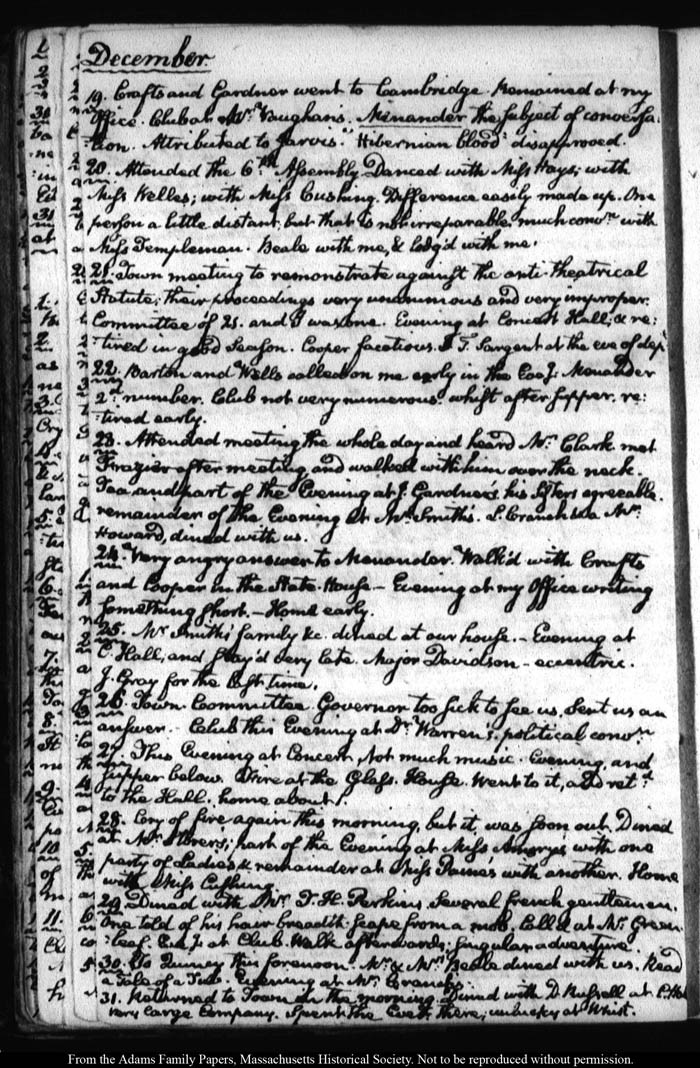 December.
19. Crafts and Gardner went to Cambridge. Remained at my
Office. Club at Mr. Vaughan's. Menander the subject of conversa:
:tion. Attributed to Jarvis. "Hibernian blood" disapproved.
20. Attended the 6th. Assembly. Danced with Miss Hays; with
Miss Kelles; with Miss Cushing. Difference easily made up. One
person a little distant, but that is not irreparable. much convn. with
Miss Templeman. Beale with me, & lodg'd with me.
21. Town meeting to remonstrate against the anti-theatrical
Statute; their proceedings very unanimous and very improper.
Committee of 21. and I was one. Evening at Concert Hall; & re:
:tired in good Season. Cooper facetious. T. Sargent at the eve of
22. Barton and Wells called on me early in the Menander
2d. number. Club not very numerous. whist after supper. re:
:tired early.
23. Attended meeting the whole day and heard Mr. Clark. met
Frazier after meeting, and walked with him over the neck.
Tea and part of the Evening at J. Gardner's. his Sisters agreeable.
remainder of the Evening at Mr. Smith's.
Howard, dined with us.
24. Very angry answer to Menander. Walk'd with Crafts
and Cooper in the State-House. — Evening at my Office writing
something short. — Home early.
25. Mr. Smith's family &c. dined at our house. — Evening at
C. Hall; and stay'd very late. Major Davidson — eccentric.
J. Gray for the last time.
26. Town Committee. Governor too sick to see us, sent us an
answer. Club this Evening at Dr. Warren's. political convn.
27. This Evening at Concert, Not much music. Evening, and
supper below. Fire at the Glass-House. Went to it, and ret'd
to the Hall. home about 1.
28. Cry of fire again this morning, but it was soon out. Dined
at Mr. part of the Evening at Miss Amory's with one
party of Ladies & remainder at Miss Paine's with another. Home
with Miss Cushing.
29. Dined with Mr. T. H. Perkins. Several french gentlemen.
One told of his hair breadth scape from a mob. Call'd at Mr. Green:
:leaf. at Club. Walk afterwards; singular adventure.
30. To Quincy this forenoon. Mr. & Mrs. Beale dined with us. Read
a Tale of a Tub. Evening at Mr. Cranch's.
31. Returned to Town in the morning. Dined with D. Russell at
very large Company. Spent the Eveg. there; unlucky at Whist.
From the Adams Family Papers, Massachusetts Historical Society. Not to be reproduced without permission.